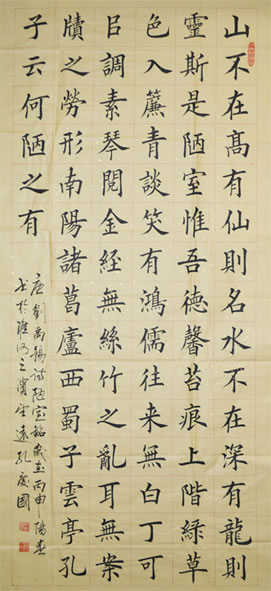 山不在髙有仙則名水不在深有龍則
靈斯是陋室惟吾德馨苔痕上階綠草
色入簾青談笑有鴻儒往来無白丁可
㠯調素琴閱金経無絲竹之亂耳無案
牘之勞形南陽諸葛廬西蜀子雲亭孔
子云何陋之有
唐劉禹錫詩陋室銘歲在丙申陽春
书於淮河之濱遠孔慶國